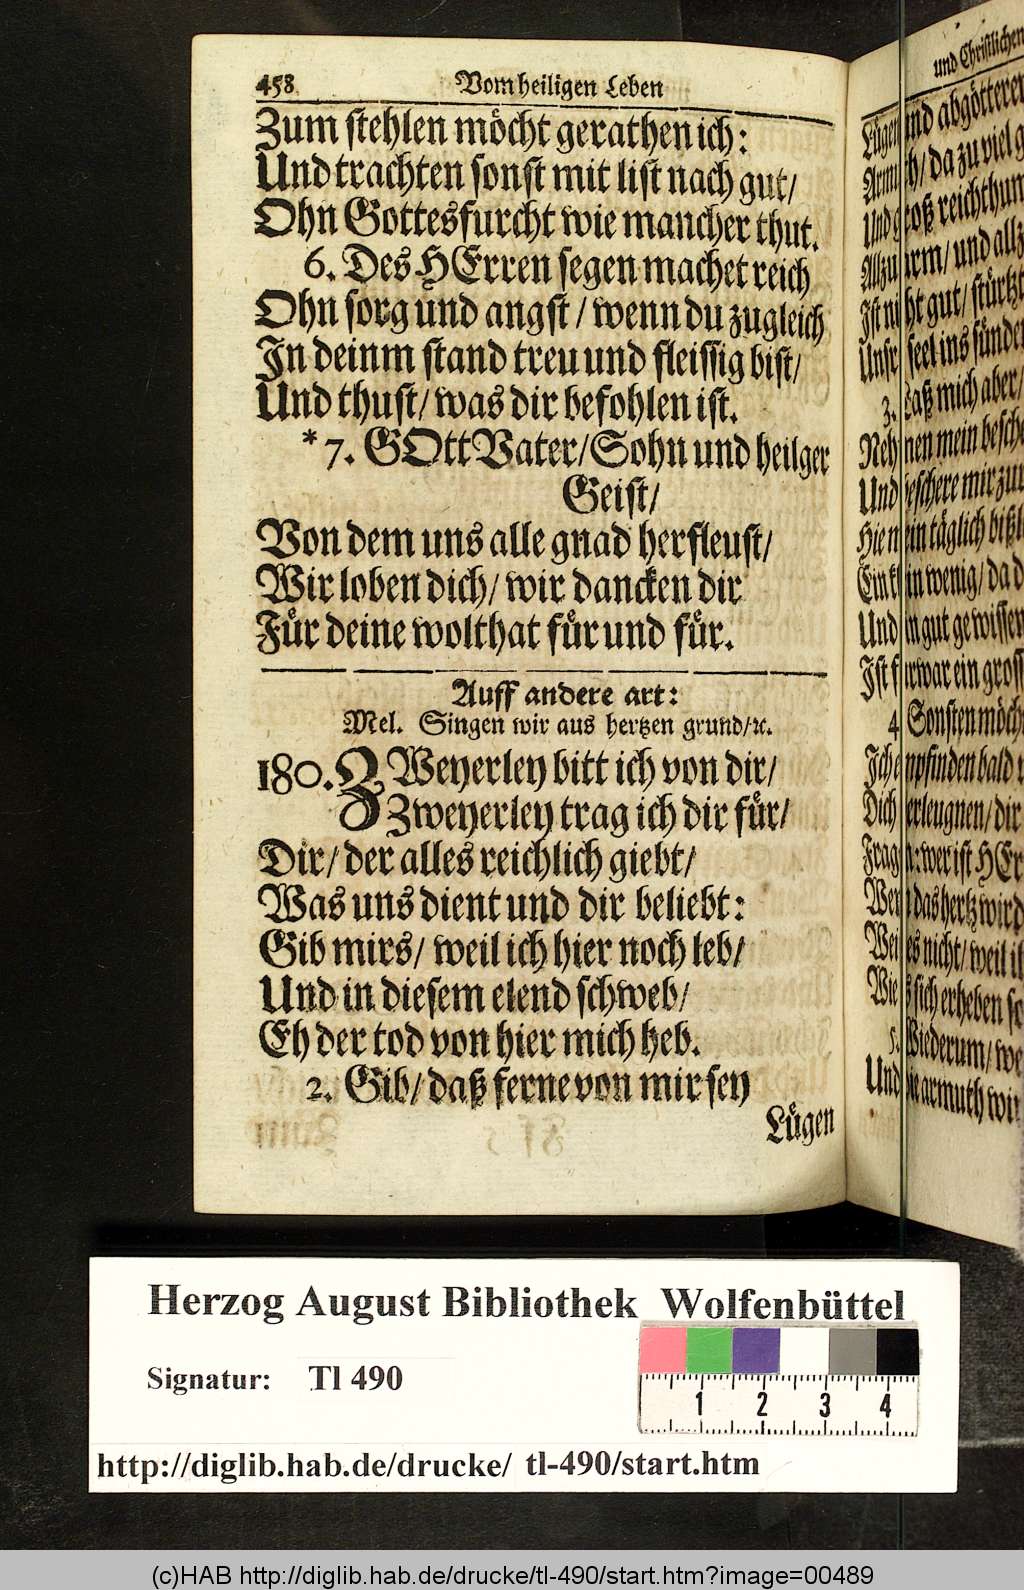 458 Vom heiligen Leben
Zum stehlen möcht gerathen ich:
Und trachten sonst mit list nach gut/
Ohn Gottesfurcht wie mancher thut.
6. Des HErren segen machet reich
Ohn sorg und angst / wenn du zugleich
In deinm stand treu und fleissig bist/
Und thust/ was dir befohlen ist.
* 7. GOtt Vater/ Sohn und heilger
Geist/
Von dem uns alle gnad herfleust/
Wir loben dich/ wir dancken dir
Für deine wolthat für und für.
Auff andere art:
Mel. Singen wir aus hertzen grund/ꝛc.
180. ZWeyerley bitt ich von dir/
Zweyerley trag ich dir für/
Dir/ der alles reichlich giebt/
Was uns dient und dir beliebt:
Gib mirs/ weil ich hier noch leb/
Und in diesem elend schweb/
Eh der tod von hier mich heb.
2. Gib/ daß ferne von mir sey
Lügen
und Christlichen
Lügen und abgötteren
da zu viel
Und reichthum
Allzu arm/ und allz
Ist nicht gut/ stürtzt
Unsr seel ins sünden
3. Laß mich aber/
Nehmen mein besche
Und beschere mir zur
Hie mein täglich bißl
Ein klein wenig/ da d
Und ein gut gewissen
Ist fürwar ein gross
4. Sonsten möch
Ich empfinden bald
Dich verleugnen/ dir
Fragen: wer ist HEr
das hertz wird
Weil es nicht/ weil
Wie sich erheben so
5. Wiederum/ we
Und die armuth wir
Herzog August Bibliothek Wolfenbüttel
Signatur: Tl 490
1 2 3 4
http://diglib.hab.de/drucke/ tl-490/start.htm
(c)HAB http://diglib.hab.de/drucke/tl-490/start.htm?image=00489